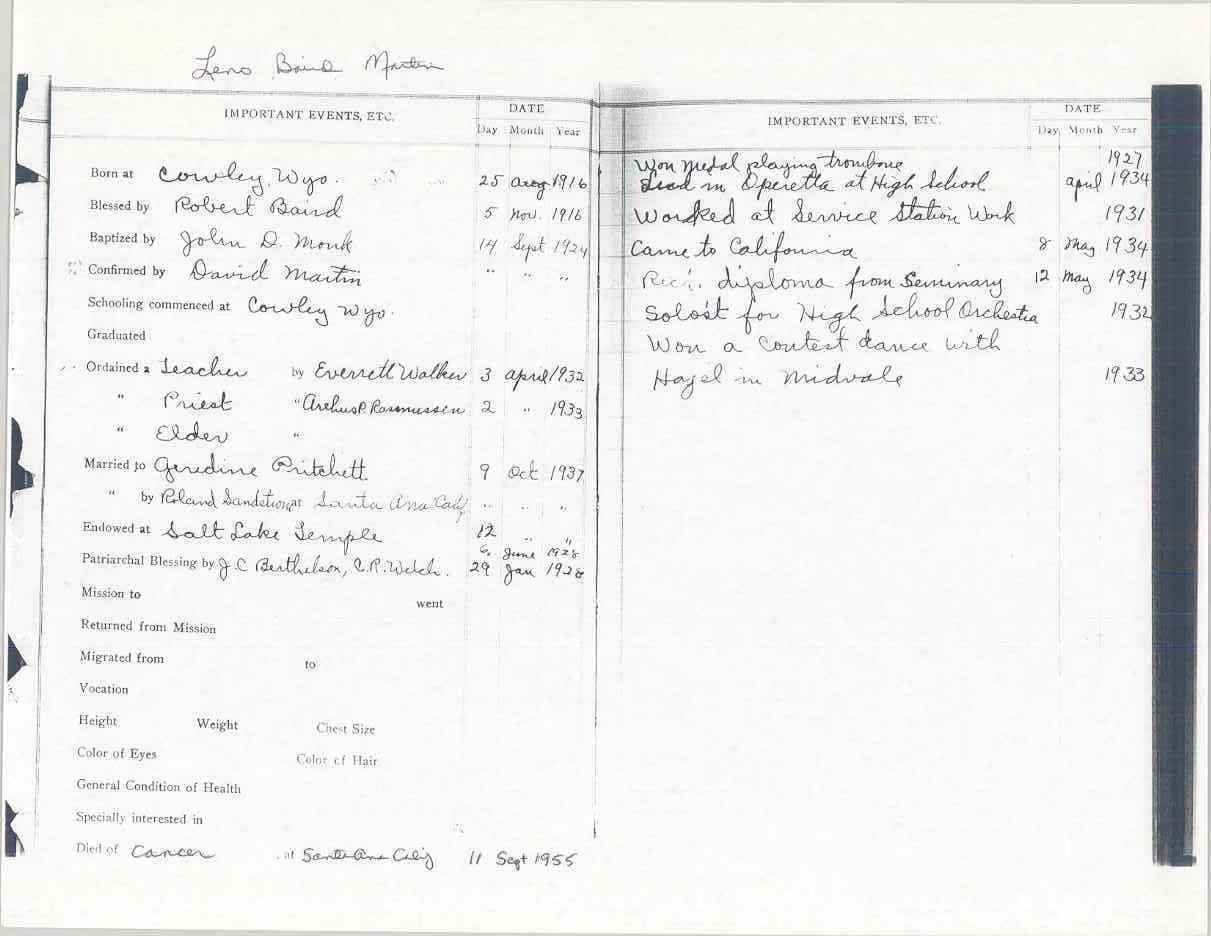 Leno Baird Martin
IMPORTANT EVENTS, ETC.
DATE
Day Month Year
Born at Cowley, Wyo. 25 Aug 1916
Blessed by Robert Baird 5 Nov. 1916
Baptized by John D. Monk 14 Sept 1924
Confirmed by David Martin " " "
Schooling commenced at Cowley Wyo.
Graduated
Ordained a Teacher by Everrett Walker 3 april 1932
" Priest " P. Rasmussen 2 " 1933
" Elder "
Married to Geredine Pritchett 9 Oct 1937
" by Roland at Santa Ana Calif " " "
Endowed at Salt Lake Temple 12 " "
6, June 1928
Patriarchal Blessing by J.C Berthelson, C.P. Welch. 29 Jan 1928
Mission to went
Returned from Mission
Migrated from to
Vocation
Height Weight Chest Size
Color of Eyes Color of Hair
General Condition of Health
Specially interested in
Died of Cancer at Santa Ana Calif 11 Sept 1955
IMPORTANT EVENTS, ETC.
DATE
Day Month Year
Won medal playing trombone 1927
in Operetta at High School april 1934
Worked at Service Station Work 1931
Came to California 8 May 1934
Rec'. diploma from Seminary 12 May 1934
Soloist for High School Orchestra 1932
Won a Contest dance with
Hazel in Midvale 1933